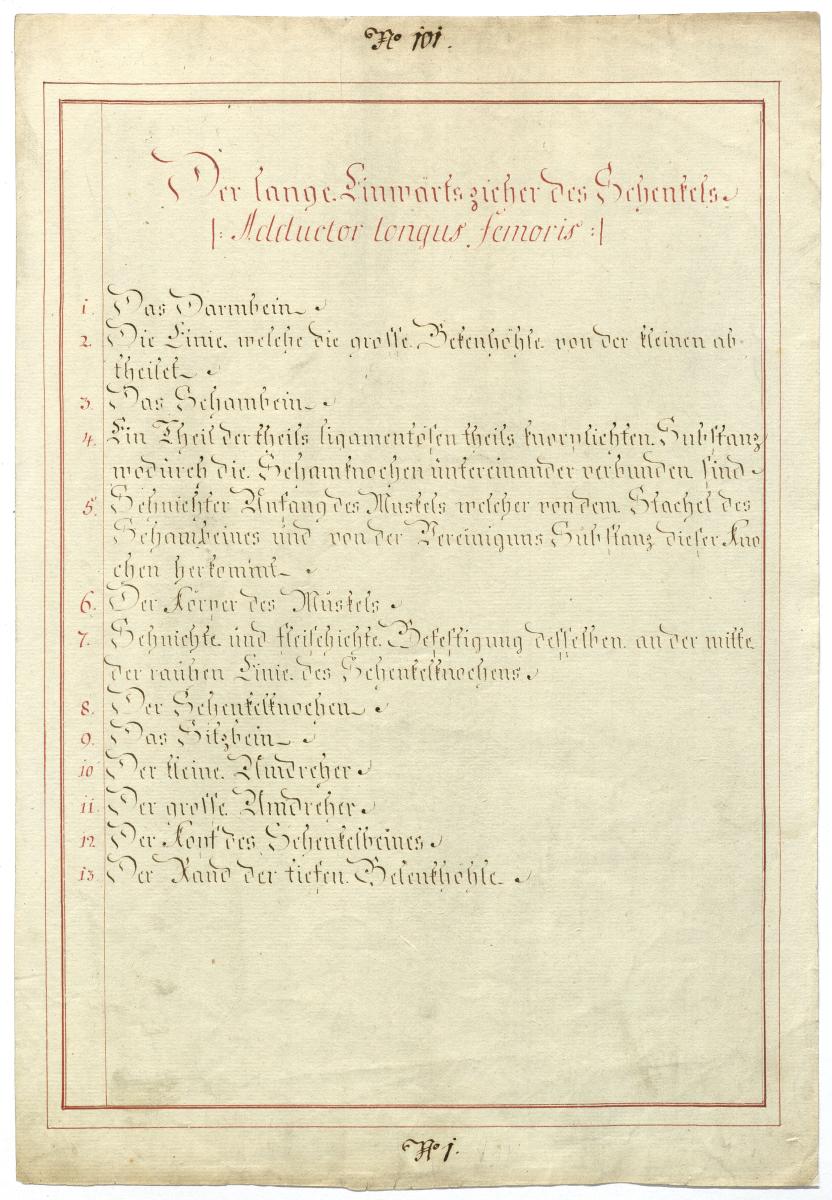 No 101.
Der lange Einwärtszieher des Schenkels.
|: Adductor longus femoris :|
1. Das Darmbein.
2. Die Linie welche die grosse Bekenhöhle von der kleinen ab-
theilet.
3. Das Schambein.
4. Ein Theil der theils ligamentösen theils knorplichten Substanz
wodurch die Schamknochen untereinander verbunden sind.
5. Sehnichter Anfang des Muskels welcher von dem Stachel des
Schambeines und von der Vereiniguns Substanz dieser Kno
chen herkommt.
6. Der Körper des Muskels.
7. Sehnichte und fleischichte Befestigung desselben an der mitte
der rauhen Linie des Schenkelknochens.
8. Der Schenkelknochen.
9. Das Sitzbein.
10 Der kleine Umdreher.
11. Der grosse Umdreher.
12 Der Kopf des Schenkelbeines.
13 Der Rand der tiefen Gelenkhöhle.
No 1.